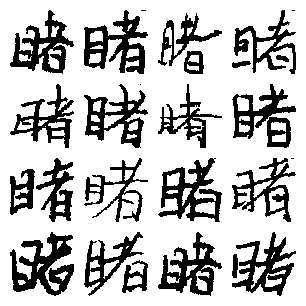 睹睹睹睹
睹睹睹睹
睹睹睹睹
睹睹睹睹